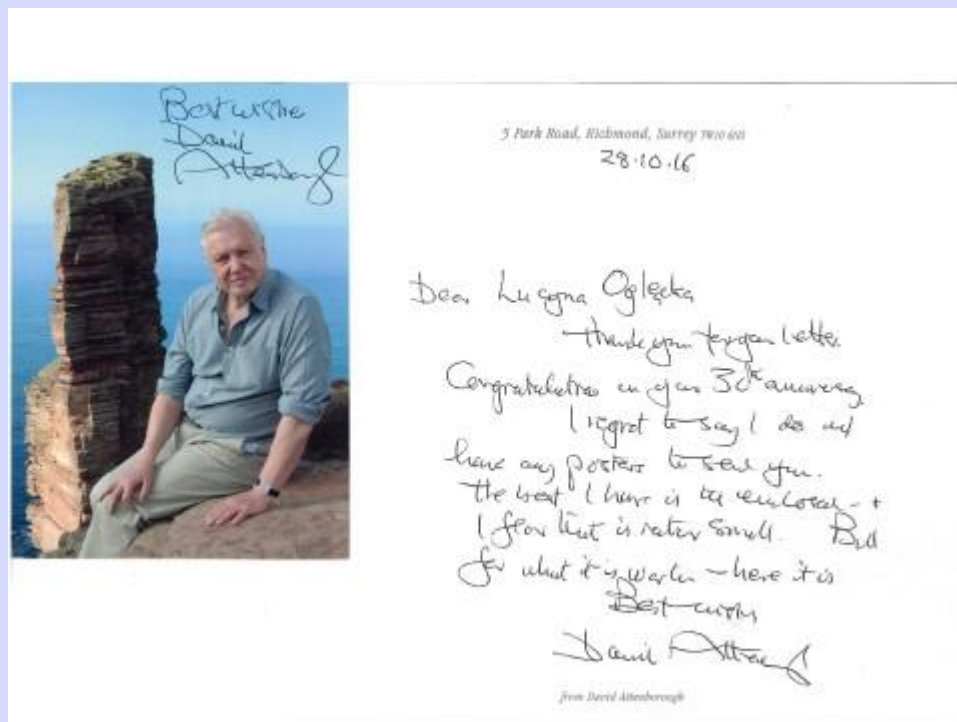 Best wishe
David
Attenborough
5 Park Road, Richmond, Surrey
28.10.16
Dear Lucyna Oglęcka
Thank you for your letter
Congratulations on your 30th anniversary
I regret to say I do not
have any posters to send you.
The best I have is the enclosed - +
I fear that is rather small. But
for what it is worth - here it is
Best wishes
David Attenborough
from David Attenborough